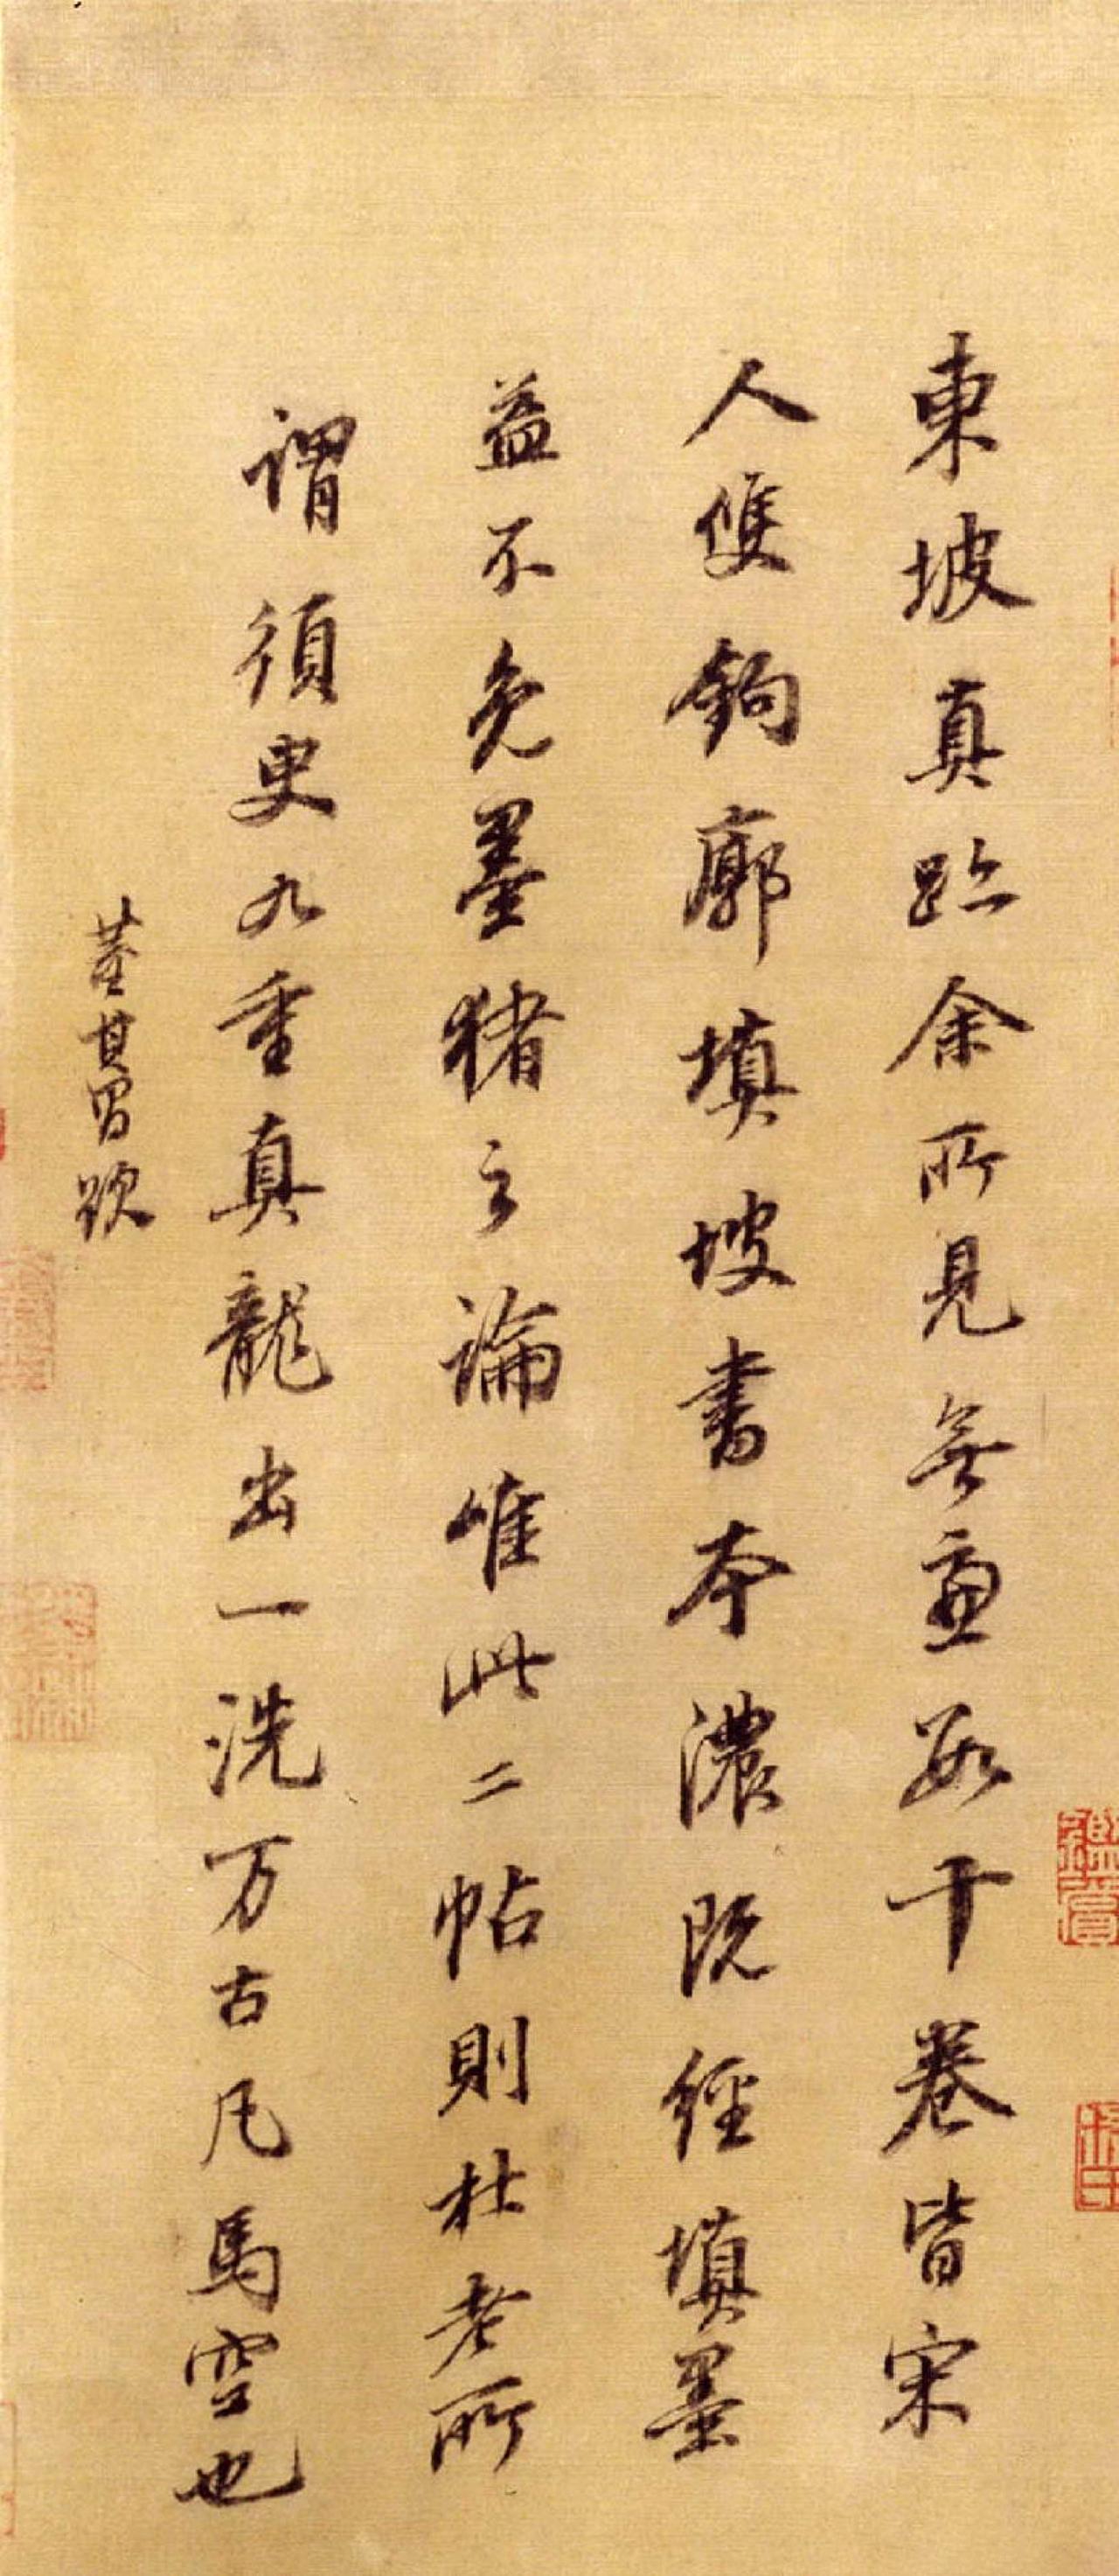 東坡真跡余所見無慮數十卷皆宋
人雙鉤廓填坡書本濃既經填墨
益不免墨豬之論唯此二帖則杜老所
謂須臾九重真龍出一洗万古凡馬空也
董其昌跋